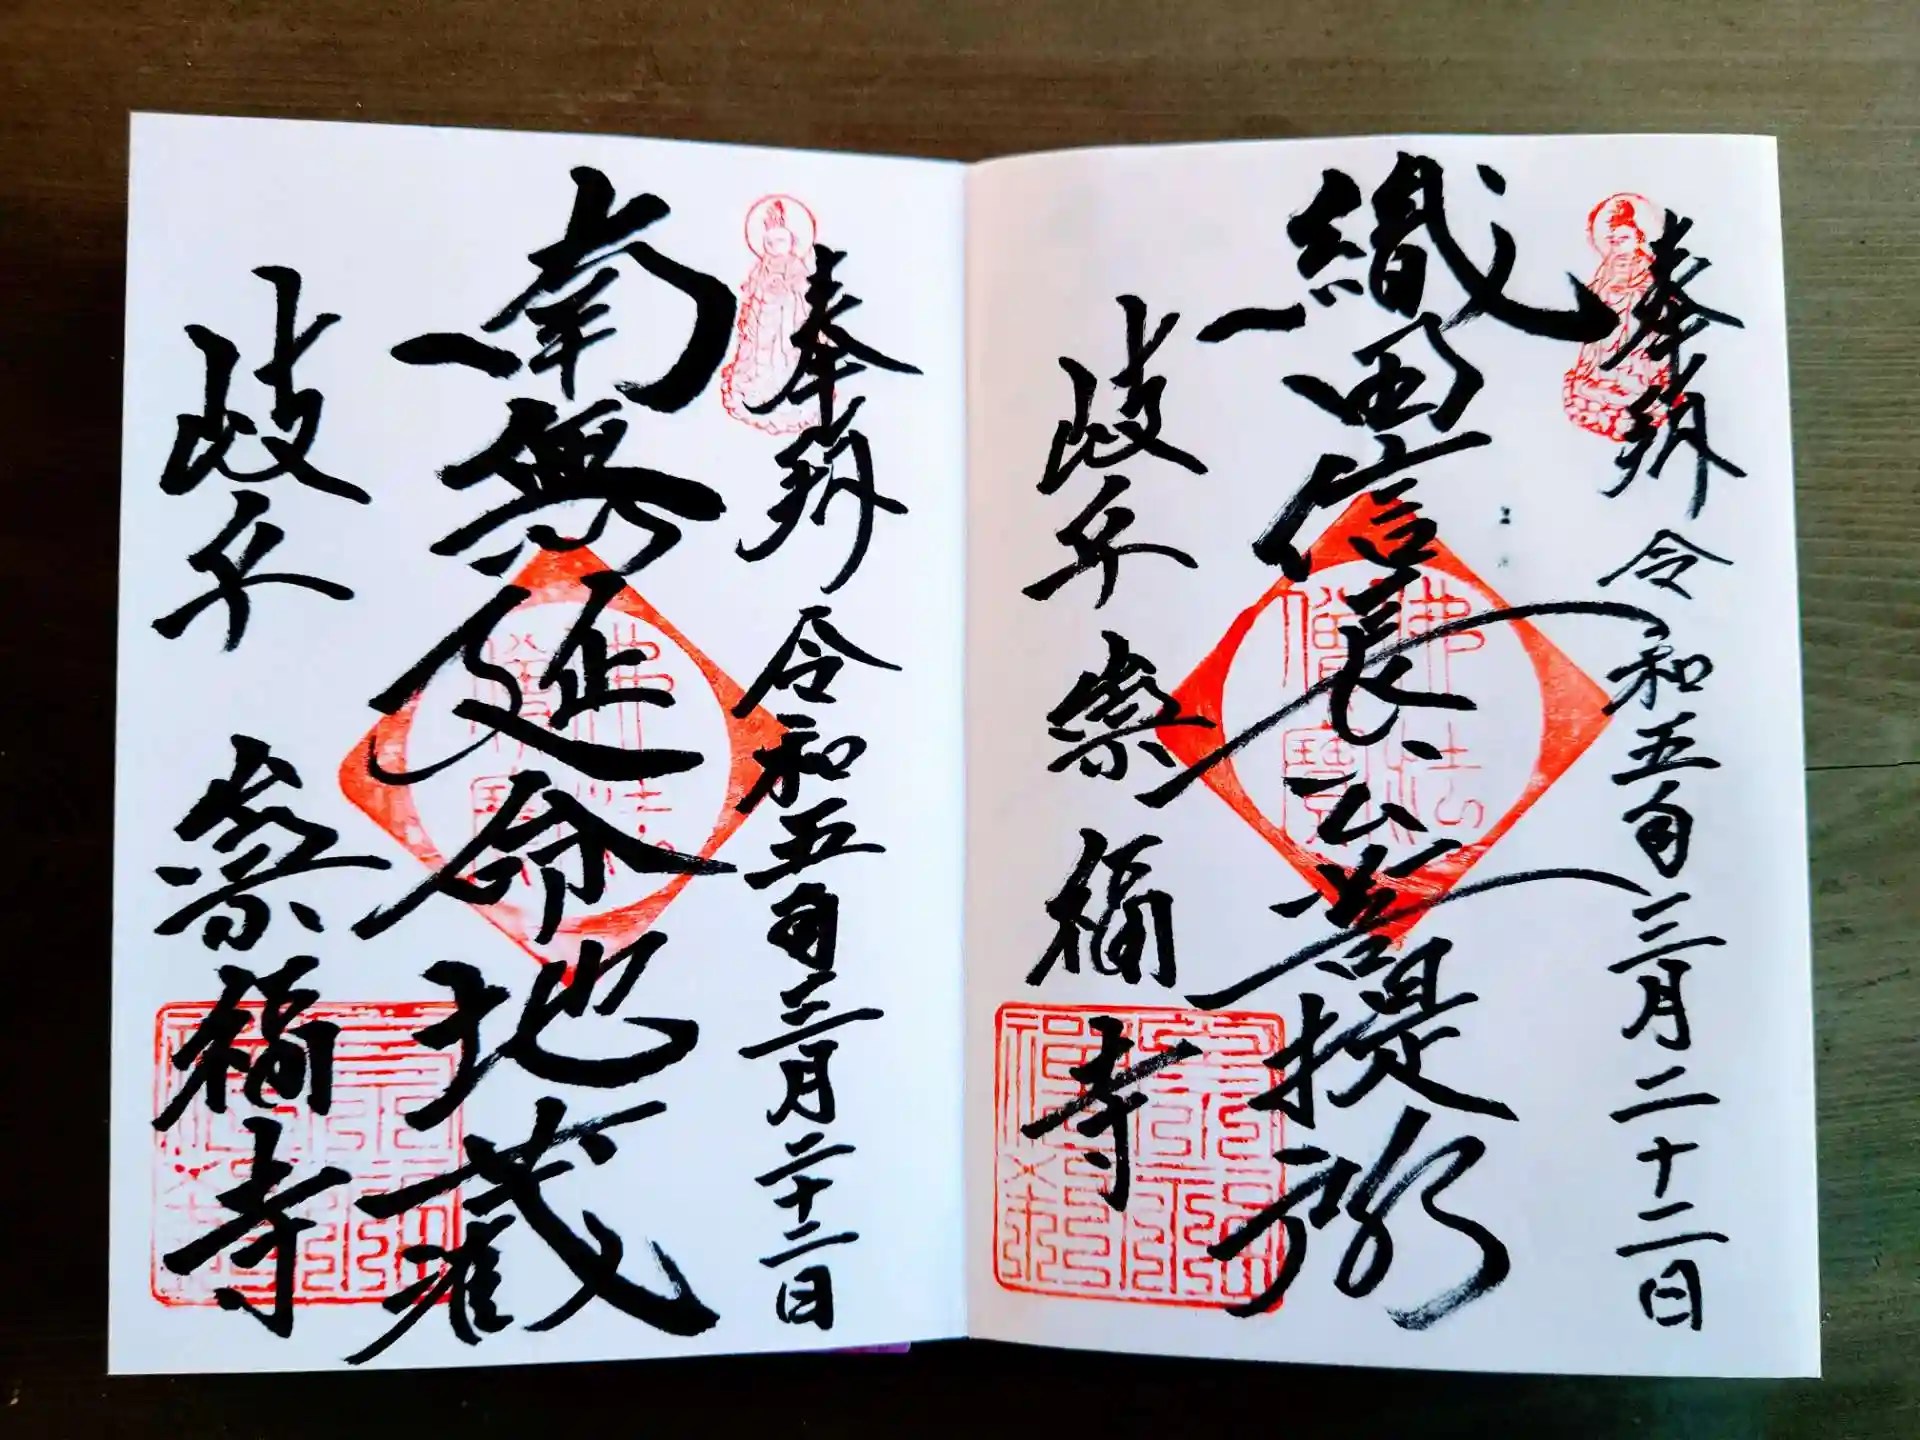 奉拝 令和五年三月二十二日
織田信長公菩提所
佛法僧寶
岐阜 崇福寺
奉拝 令和五年三月二十二日
南無延命地蔵
佛法僧寶
岐阜 崇福寺